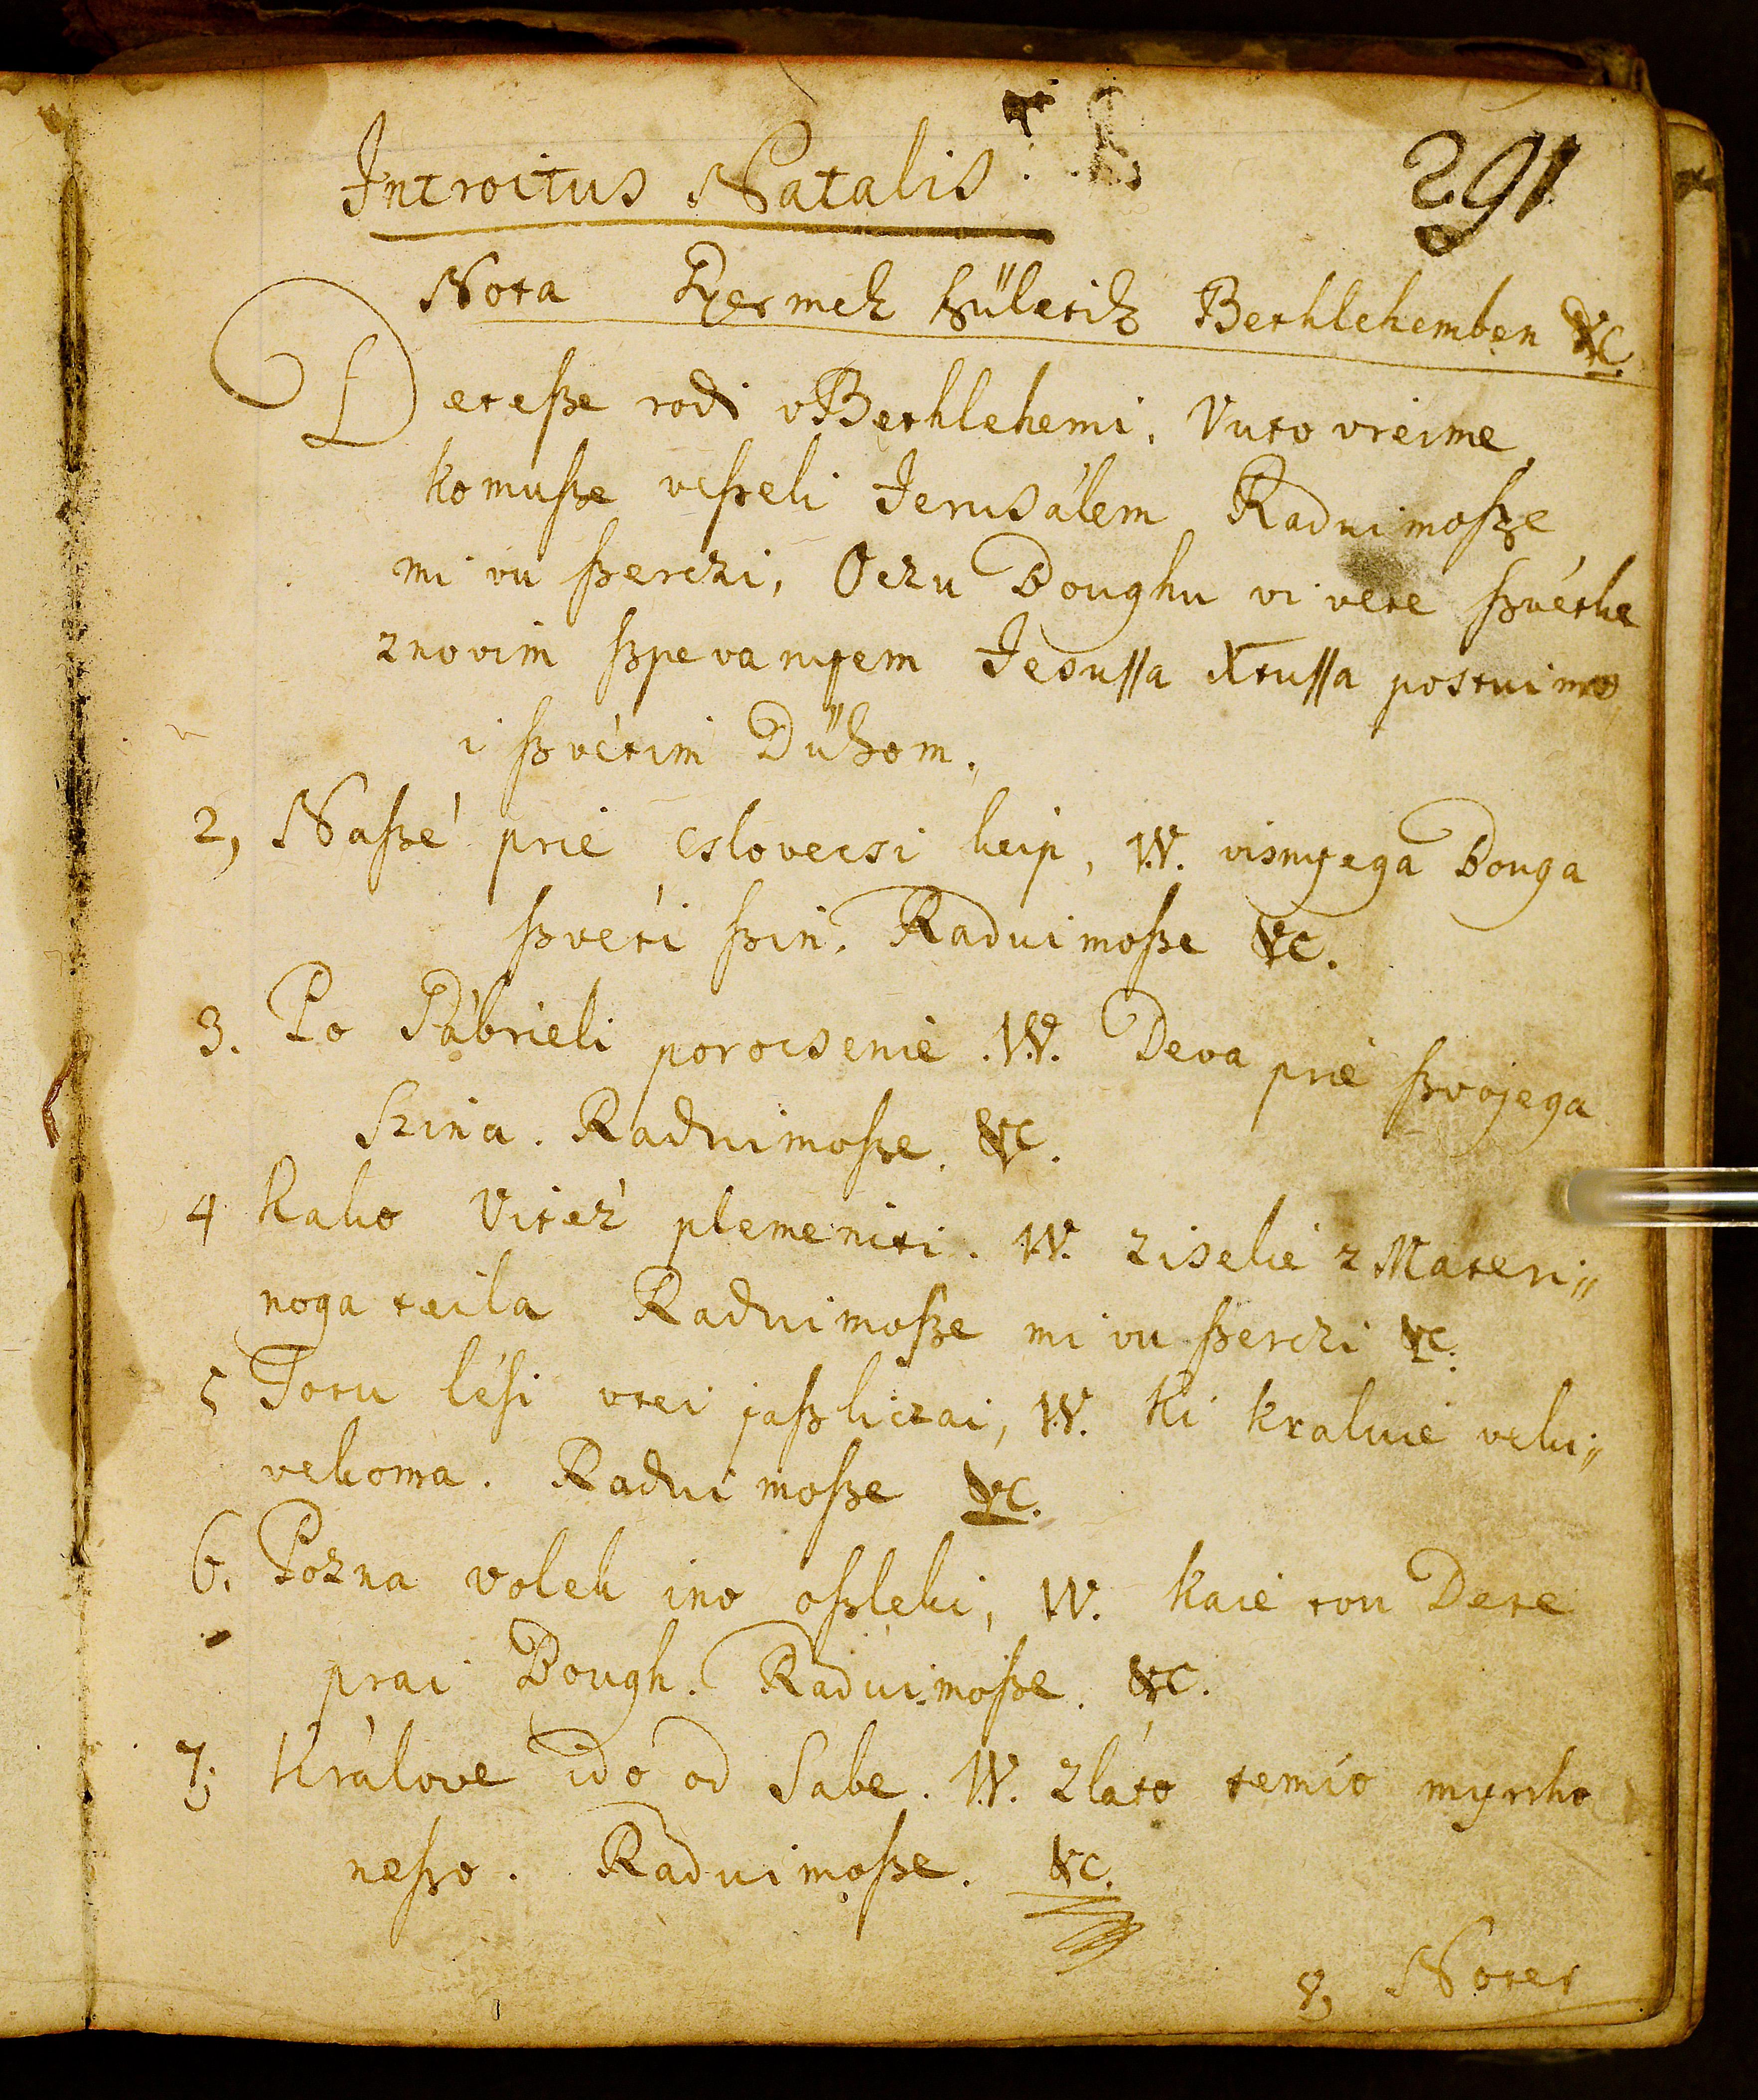 Introitus Natalis.
291
Nota Gyermek születik Bethlehemben &c.
Detesze rodi v Bethlehemi. Vuto vreime
komusze veszeli Jerusálem Raduimosze
mi vu szerczi, Oczu Boughu vi vete szvéthe
znovim szpevanyem Jesussa Xtussa postuimo
i szvétim Dűhom.
2, Naszé prié csloveczi keip, W. visnyega Bouga
szvéti szin. Raduimosze &c.
3. Po Gábrieli porocsenié. W. Deva prié szvojega
Szina. Raduimosze. &c.
4 Kako Vitéz plemeniti. W. ziselié z Materi„
noga teila Raduimosze mi vu szerczi &c.
5 Totu lési vtei jaszliczai, W. Ki kraluié veki„
vekoma. Radui mosze &c.
6. Pozna volek ino oszleki, W. kaié tou Dete
prai Bough. Raduimosze. &c.
7; Králove idó od Sabe. W. zláto temío myrrho
neszo. Raduimosze. &c.
8, Noter